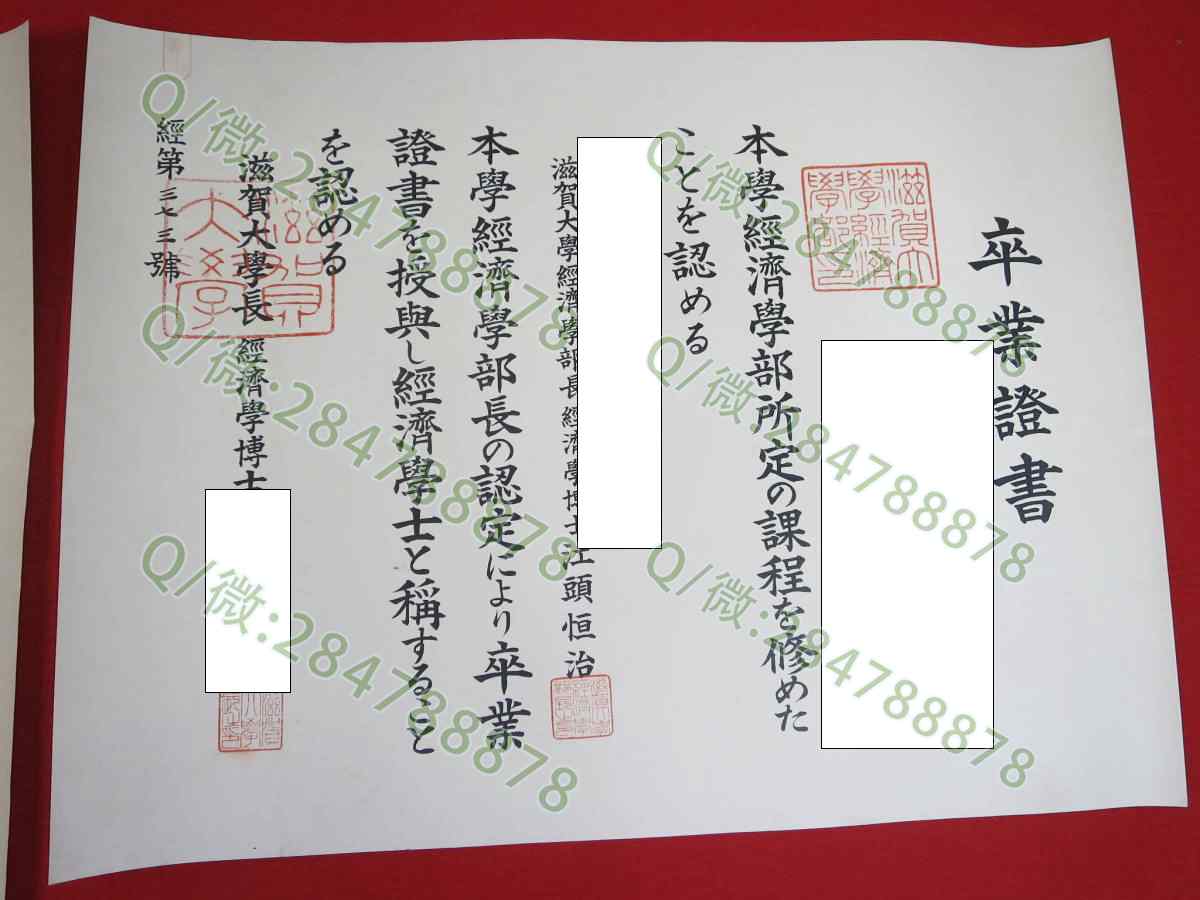 卒業證書
滋賀大
學經濟
學部印
本學經濟學部所定の課程を修めた
ことを認める
滋賀大學經濟學部長經濟學博士江頭恒治
本學經濟學部長の認定により卒業
證書を授與し經濟學士と稱すること
を認める
滋賀大學長 經濟學博士
滋賀
大學
經第三七三號
Q/微:284788878
Q/微:284788878
Q/微:284788878
Q/微:284788878
Q/微:284788878
Q/微:284788878